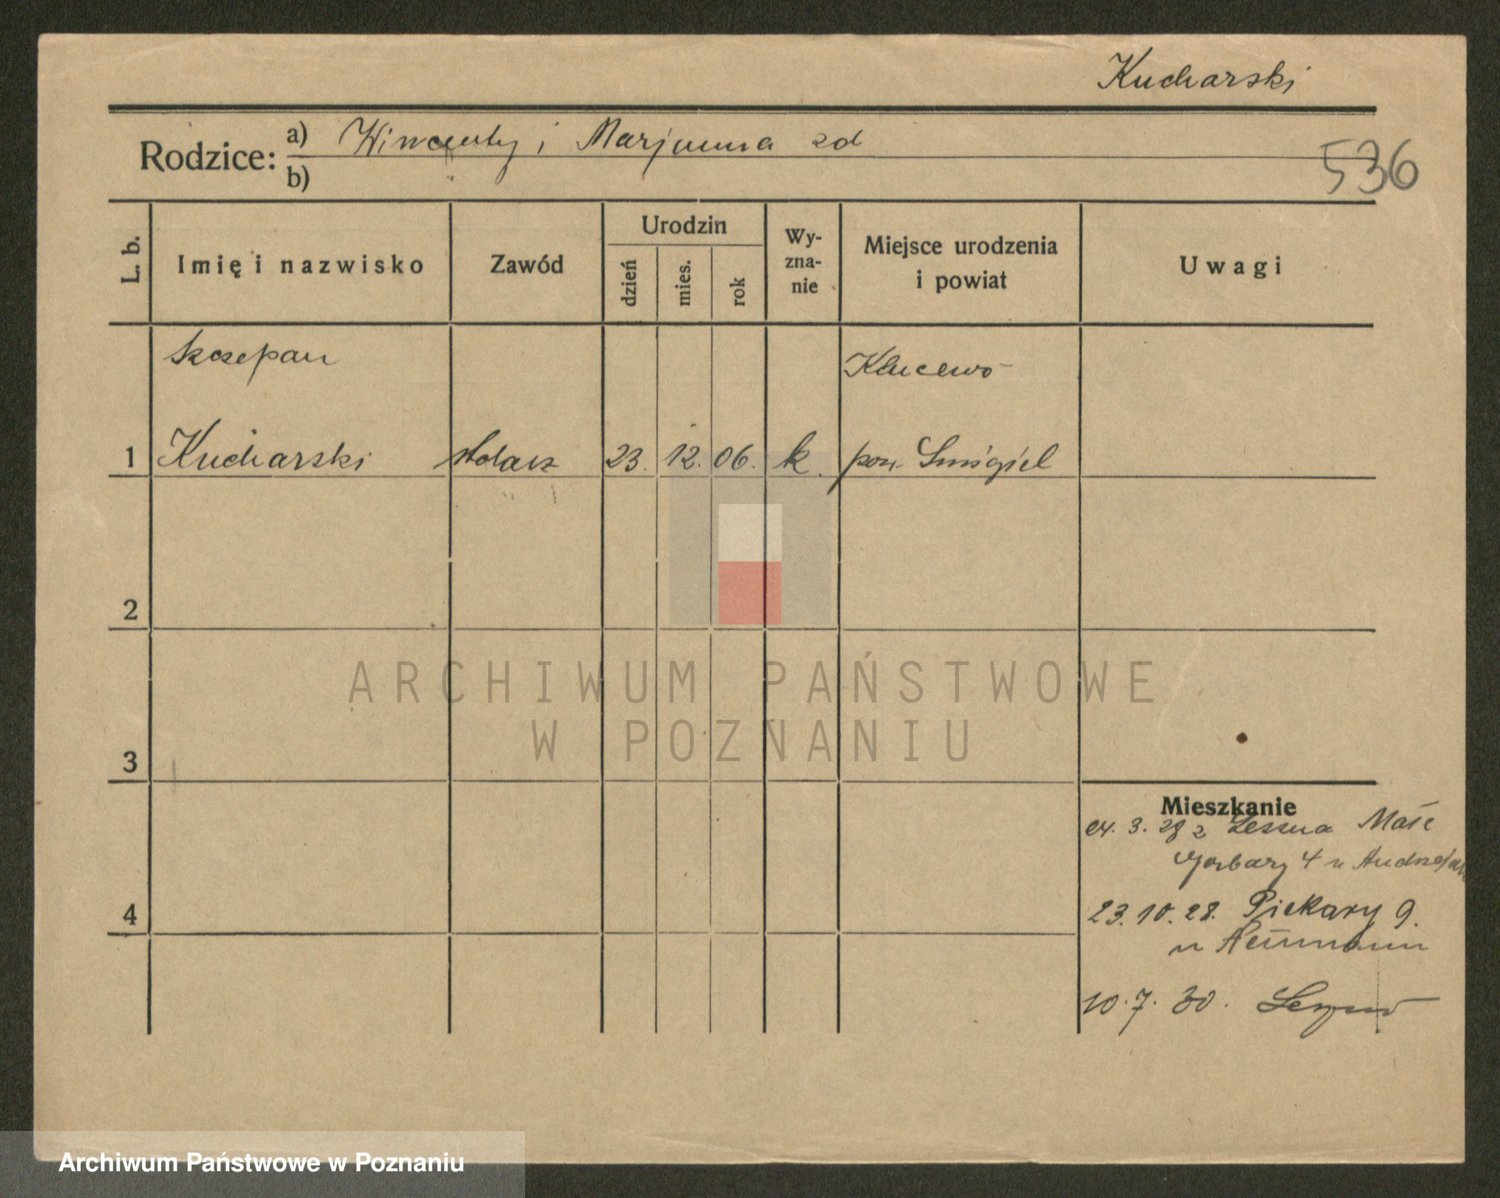 Kucharski
Rodzice: a) Wincenty i Marjanna zd
b)
536
L. b.
Imię i nazwisko
Zawód
Urodzin
dzień
mies.
rok
Wy-
zna-
nie
Miejsce urodzenia
i powiat
Uwagi
Szczepan
Kluczewo
1 Kucharski stolarz 23. 12. 06. k. pow. Śmigiel
2
3
4
Mieszkanie
24. 3. 28 z Leszna
Garbary 4 u
23. 10. 28. Piekary 9.
u Neumann
10. 7. 30.
ARCHIWUM PAŃSTWOWE
W POZNANIU
Archiwum Państwowe w Poznaniu